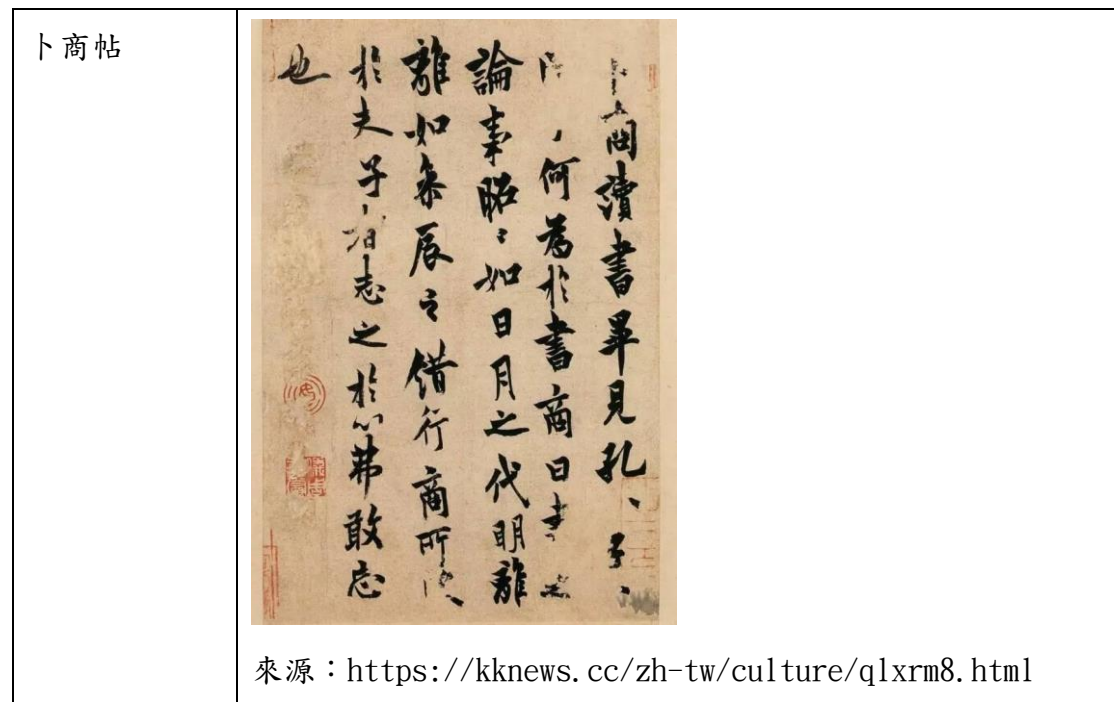 卜商帖
卜商讀書畢見孔、子、
何為於書商曰書
論事昭〻如日月之代明離
離如參辰之錯行商所
於夫子者志之於心弗敢忘
也
來源：https://kknews.cc/zh-tw/culture/qlxrm8.html